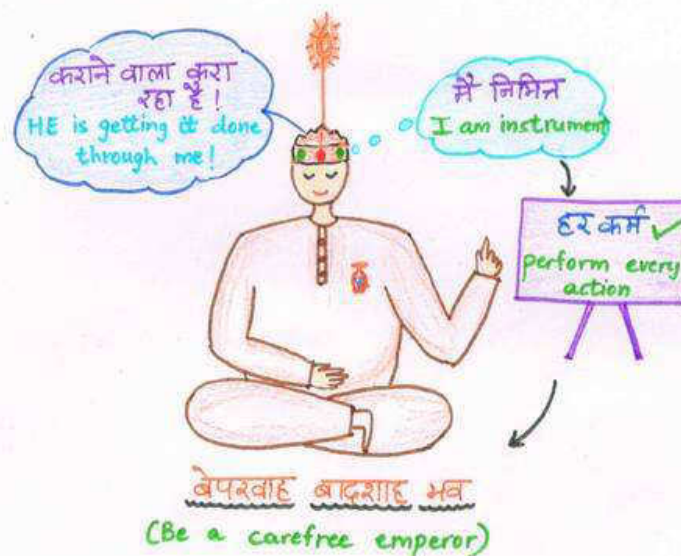 कराने वाला करा
रहा है!
HE is getting it done
through me!
मैं निमित्त
I am instrument
हर कर्म
perform every
action
बेपरवाह बादशाह भव
(Be a carefree emperor)